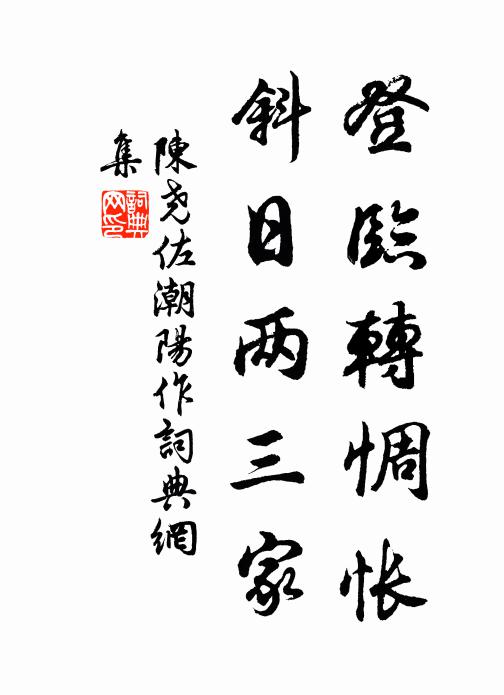 登臨轉惆怅
斜日两三家
陳尧佐潮陽作詞典網
集
詞典
网印